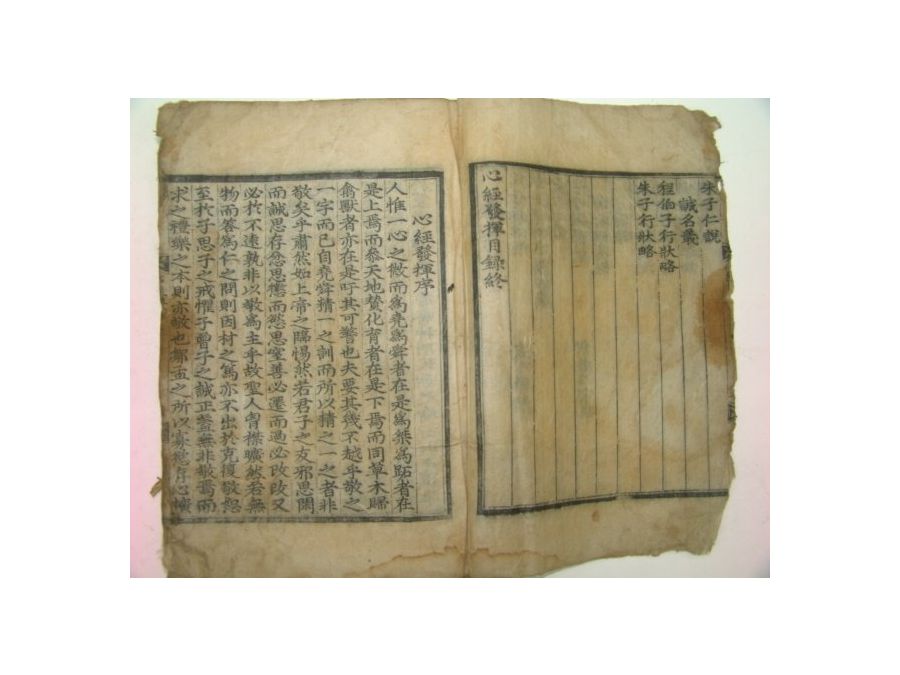 朱子仁說
誠名義
程伯子行狀略
朱子行狀略
心經發揮目錄終
心經發揮序
人惟一心之微而爲堯爲舜者在是爲桀爲跖者在
是上焉而參天地贊化育者在是下焉而同草木歸
禽獸者亦在是吁其可警也夫要其幾不越乎敬之
一字而已自堯舜精一之訓而所以精之一之者非
敬矣乎肅然如上帝之臨惕然若君子之友邪思閑
而誠思存忿思懲而慾思窒善必遷而過必改改又
必於不遠孰非以敬爲主乎故聖人胷襟曠然若無
物而答爲仁之問則因材之篤亦不出於克復敬恕
至於子思子之戒懼子曾子之誠正蓋無非敬焉而
求之禮樂之本則亦敬也鄒孟之所以寡慾存心擴